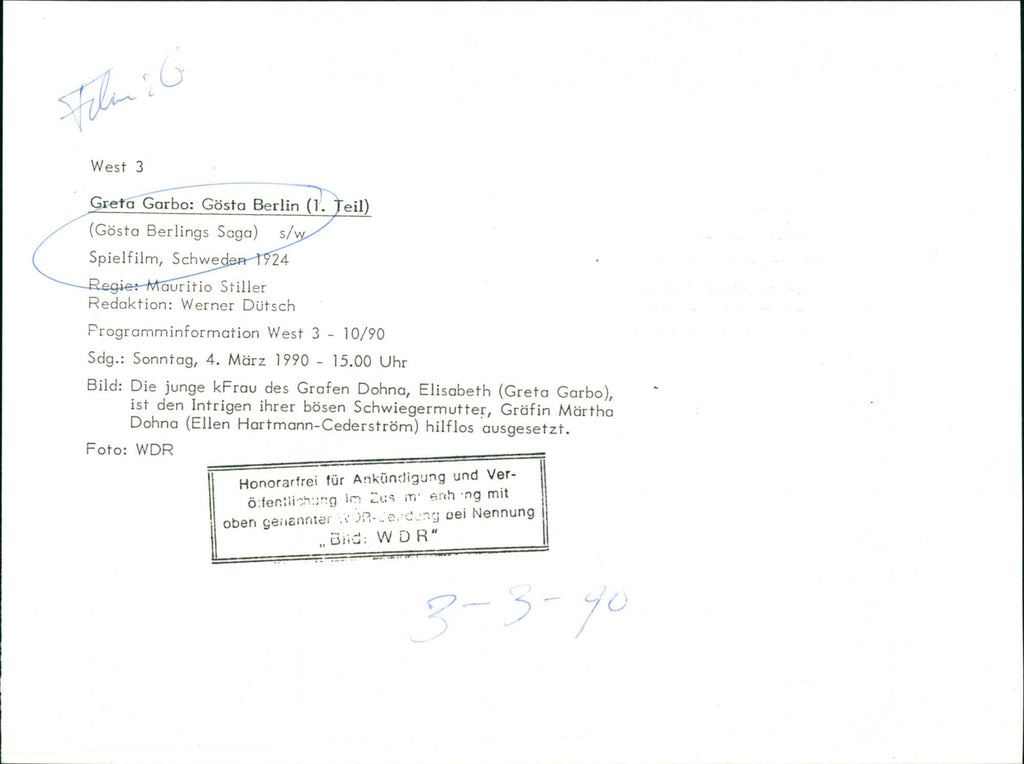 Film: G
West 3
Greta Garbo: Gösta Berlin (1. Teil)
(Gösta Berlings Saga) s/w
Spielfilm, Schweden 1924
Regie: Mauritio Stiller
Redaktion: Werner Dütsch
Programminformation West 3 - 10/90
Sdg.: Sonntag, 4. März 1990 - 15.00 Uhr
Bild: Die junge kFrau des Grafen Dohna, Elisabeth (Greta Garbo),
ist den Intrigen ihrer bösen Schwiegermutter, Gräfin Märtha
Dohna (Ellen Hartmann-Cederström) hilflos ausgesetzt.
Foto: WDR
Honorarfrei für Ankündigung und Ver-
öffentlichung im Zusammenhang mit
oben genannter WDR-Sendung bei Nennung
„Bild: WDR"
3-3-90